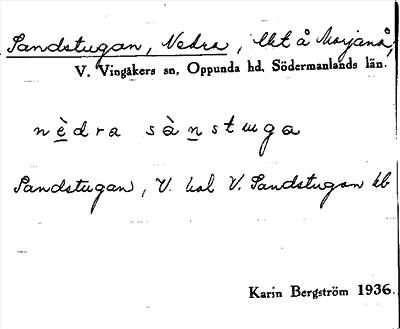 Sandstugan, Nedra, lht å Marjanå,
V. Vingåkers sn, Oppunda hd, Södermanlands län.
nèdra sànstuga
Sandstugan, V. kal V. Sandstugan hb
Karin Bergström 1936.